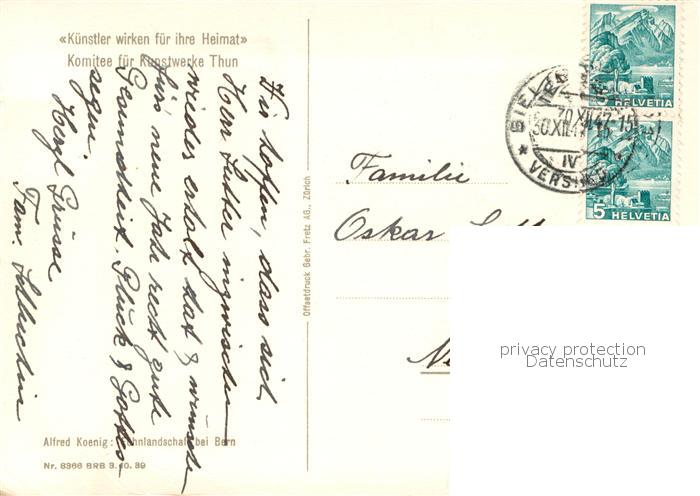 «Künstler wirken für ihre Heimat»
Komitee für Kunstwerke Thun
Wir hoffen, dass sich
Herr Sutter inzwischen
wieder erholt hat & wünschen
fürs neue Jahr recht gute
Gesundheit, Glück & Gottes-
segen.
Herzl. Grüsse
Fam.
Alfred Koenig: bei Bern
Nr. 8366 BRB 3.10.39
Offsetdruck Gebr. Fretz AG., Zürich
Familie
Oskar
5 HELVETIA
5 HELVETIA
BIEL
30.XII.47-15
IV
VERSAND
privacy protection
Datenschutz